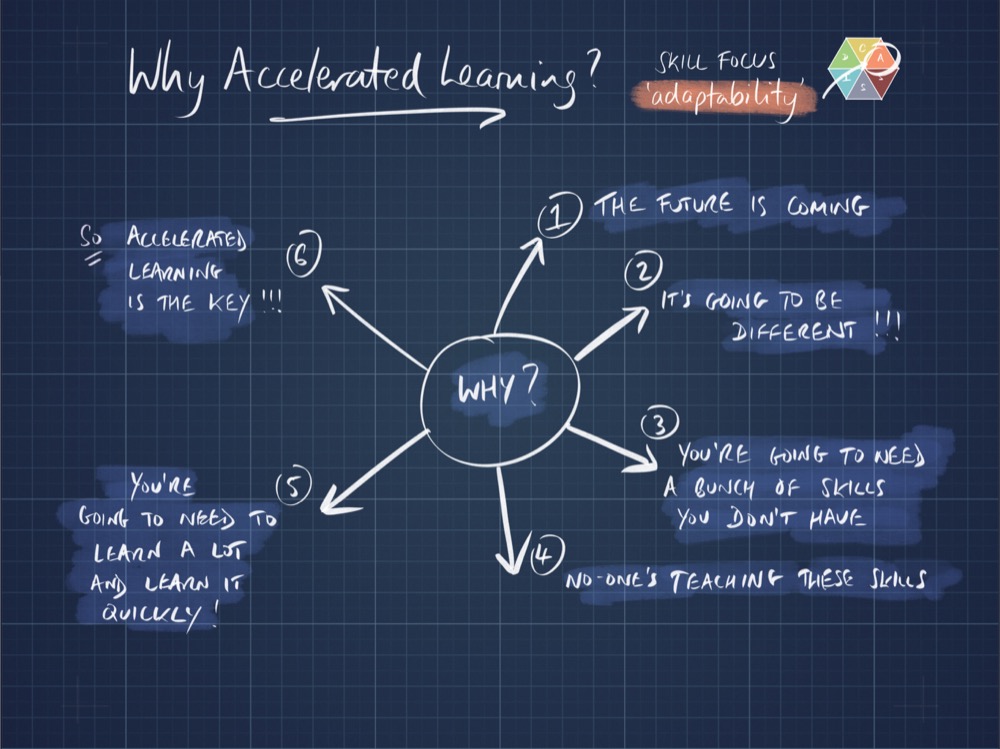 Why Accelerated Learning?
SKILL FOCUS
'adaptability'
1 THE FUTURE IS COMING
2
IT'S GOING TO BE
DIFFERENT !!!
3
YOU'RE GOING TO NEED
A BUNCH OF SKILLS
YOU DON'T HAVE
4 NO-ONE'S TEACHING THESE SKILLS
5
YOU'RE
GOING TO NEED TO
LEARN A LOT
AND LEARN IT
QUICKLY!
6
SO ACCELERATED
LEARNING
IS THE KEY !!!
WHY?